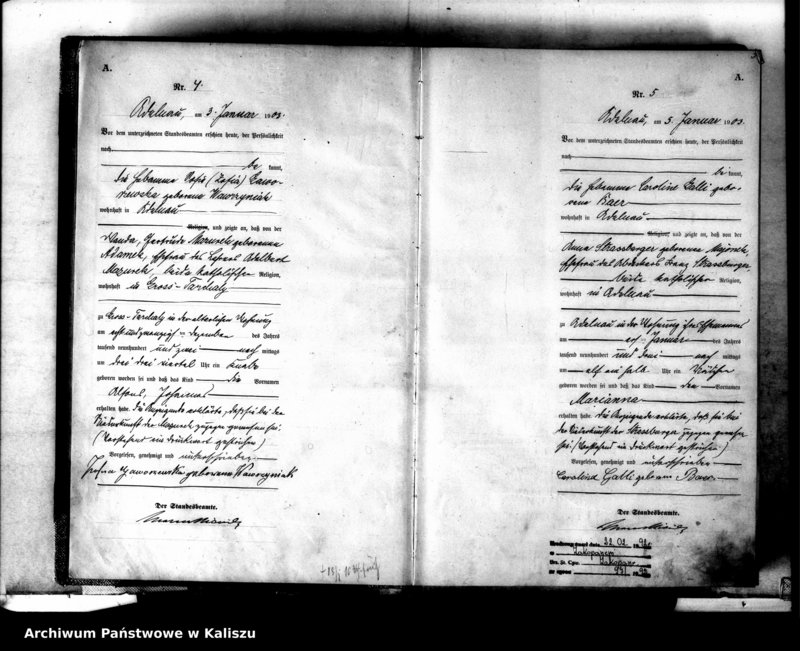 A.
Nr. 4
Adelnau, am 3. Januar 1903.
Vor dem unterzeichneten Standesbeamten erschien heute, der Persönlichkeit
nach
be kannt,
die Hebamme Sofie (Zofia) Jawo-
rowska geborene Wawrzyniak
wohnhaft in Adelnau
Religion, und zeigte an, daß von der
Wanda, Gertrude Marusch geborenen
Adamek, Ehefrau des Lehrers Adelbert
Marusch, beide katholischer Religion,
wohnhaft in Gross-Tarchaly
zu Gross-Tarchaly in der elterlichen Wohnung
am Dezember des Jahres
tausend neunhundert und zwei nach mittags
um drei drei viertel Uhr ein Knabe
geboren worden sei und daß das Kind die Vornamen
Alfons, Johannes
erhalten habe. Die Anzeigende erklärte, daß sie bei der
Niederkunft der Marusch zugegen gewesen sei.
(Vorstehend ein Druckwort gestrichen)
Vorgelesen, genehmigt und unterschrieben
geborene Wawrzyniak
Der Standesbeamte.
A.
Nr. 5
Adelnau, am 5. Januar 1903.
Vor dem unterzeichneten Standesbeamten erschien heute, der Persönlichkeit
nach
be kannt,
die Hebamme Caroline Galli gebo-
rene Baer
wohnhaft in Adelnau
Religion, und zeigte an, daß von der
Anna Strassberger geborenen
Ehefrau des Franz Strassberger
beide katholischer Religion,
wohnhaft in Adelnau
zu Adelnau in der Wohnung ihres Ehemannes
am Januar des Jahres
tausend neunhundert und drei nach mittags
um elf ein halb Uhr ein Mädchen
geboren worden sei und daß das Kind den Vornamen
Marianna
erhalten habe. Die Anzeigende erklärte, daß sie bei
der Niederkunft der Strassberger zugegen gewesen
sei. (Vorstehend ein Druckwort gestrichen)
Vorgelesen, genehmigt und unterschrieben
Caroline Galli geborene Baer
Der Standesbeamte.
22.02
Zakopanem
Zakopane
Archiwum Państwowe w Kaliszu